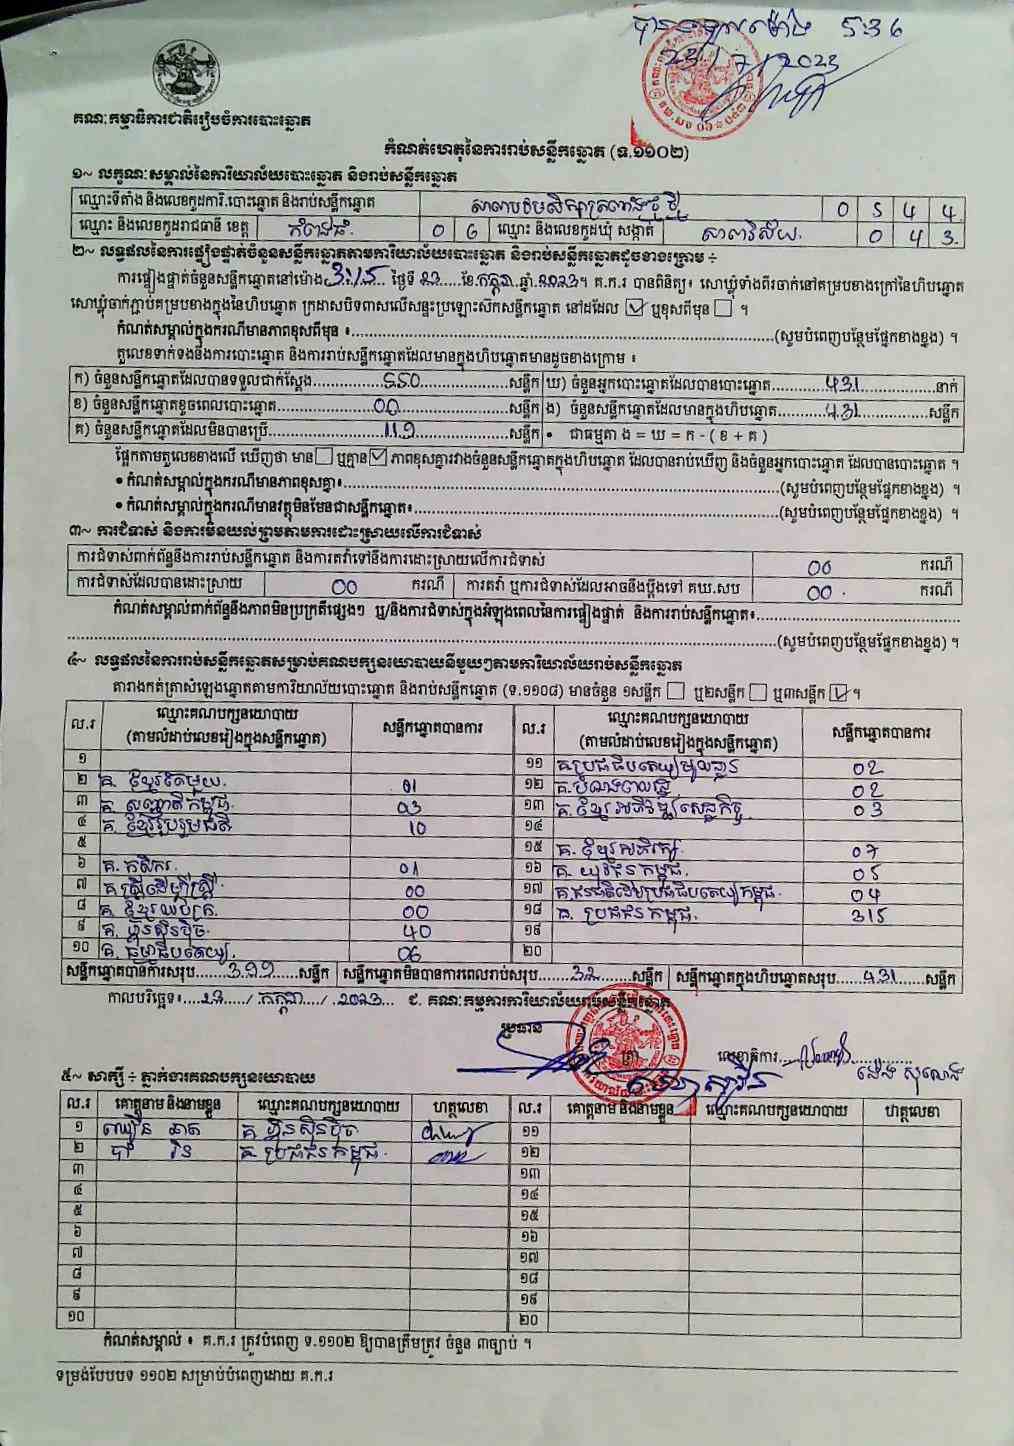 បានទទួលម៉ោង 5:36
23/7/2023
គណៈកម្មាធិការជាតិរៀបចំការបោះឆ្នោត
កំណត់ហេតុនៃការរាប់សន្លឹកឆ្នោត (ទ.១១០២)
១~ លក្ខណៈសម្គាល់នៃការិយាល័យបោះឆ្នោត និងរាប់សន្លឹកឆ្នោត
ឈ្មោះទីតាំង និងលេខកូដការិ.បោះឆ្នោត និងរាប់សន្លឹកឆ្នោត សាលាបឋមសិក្សាត្រពាំងឫស្សី 0 5 4 4
ឈ្មោះ និងលេខកូដរាជធានី ខេត្ត កំពង់ធំ 0 6 ឈ្មោះ និងលេខកូដឃុំ សង្កាត់ សាលាវិស័យ 0 4 3
២~ លទ្ធផលនៃការផ្ទៀងផ្ទាត់ចំនួនសន្លឹកឆ្នោតតាមការិយាល័យបោះឆ្នោត និងរាប់សន្លឹកឆ្នោតដូចខាងក្រោម ÷
ការផ្ទៀងផ្ទាត់ចំនួនសន្លឹកឆ្នោតនៅម៉ោង 3:15 ថ្ងៃទី 23 ខែ កក្កដា ឆ្នាំ 2023។ គ.ក.រ បានពិនិត្យ៖ សោឃ្លុំទាំងពីរចាក់នៅគម្របខាងក្រៅនៃហិបឆ្នោត
សោឃ្លុំចាក់ភ្ជាប់គម្របខាងក្នុងនៃហិបឆ្នោត ក្រដាសបិទពាសលើសន្ទះប្រឡោះស៊កសន្លឹកឆ្នោត នៅដដែល ☑ ឬខុសពីមុន ☐ ។
កំណត់សម្គាល់ក្នុងករណីមានភាពខុសពីមុន ៖ (សូមបំពេញបន្ថែមផ្នែកខាងខ្នង) ។
តួលេខទាក់ទងនឹងការបោះឆ្នោត និងការរាប់សន្លឹកឆ្នោតដែលមានក្នុងហិបឆ្នោតមានដូចខាងក្រោម ៖
ក) ចំនួនសន្លឹកឆ្នោតដែលបានទទួលជាក់ស្តែង 550 សន្លឹក ឃ) ចំនួនអ្នកបោះឆ្នោតដែលបានបោះឆ្នោត 431 នាក់
ខ) ចំនួនសន្លឹកឆ្នោតខូចពេលបោះឆ្នោត 00 សន្លឹក ង) ចំនួនសន្លឹកឆ្នោតដែលមានក្នុងហិបឆ្នោត 431 សន្លឹក
គ) ចំនួនសន្លឹកឆ្នោតដែលមិនបានប្រើ 119 សន្លឹក • ជាធម្មតា ង = ឃ = ក - ( ខ + គ )
ផ្អែកតាមតួលេខខាងលើ ឃើញថា មាន ☐ ឬគ្មាន ☑ ភាពខុសគ្នារវាងចំនួនសន្លឹកឆ្នោតក្នុងហិបឆ្នោត ដែលបានរាប់ឃើញ និងចំនួនអ្នកបោះឆ្នោត ដែលបានបោះឆ្នោត ។
• កំណត់សម្គាល់ក្នុងករណីមានភាពខុសគ្នា៖ (សូមបំពេញបន្ថែមផ្នែកខាងខ្នង) ។
• កំណត់សម្គាល់ក្នុងករណីមានវត្ថុមិនមែនជាសន្លឹកឆ្នោត៖ (សូមបំពេញបន្ថែមផ្នែកខាងខ្នង) ។
៣~ ការជំទាស់ និងការមិនយល់ព្រមតាមការដោះស្រាយលើការជំទាស់
ការជំទាស់ពាក់ព័ន្ធនឹងការរាប់សន្លឹកឆ្នោត និងការតវ៉ាទៅនឹងការដោះស្រាយលើការជំទាស់ 00 ករណី
ការជំទាស់ដែលបានដោះស្រាយ 00 ករណី ការតវ៉ា ឬការជំទាស់ដែលអាចនឹងប្តឹងទៅ គឃ.សប 00 ករណី
កំណត់សម្គាល់ពាក់ព័ន្ធនឹងភាពមិនប្រក្រតីផ្សេងៗ ឬ/និងការជំទាស់ក្នុងអំឡុងពេលនៃការផ្ទៀងផ្ទាត់ និងការរាប់សន្លឹកឆ្នោត៖
(សូមបំពេញបន្ថែមផ្នែកខាងខ្នង) ។
៤~ លទ្ធផលនៃការរាប់សន្លឹកឆ្នោតសម្រាប់គណបក្សនយោបាយនីមួយៗតាមការិយាល័យរាប់សន្លឹកឆ្នោត
តារាងកត់ត្រាសំឡេងឆ្នោតតាមការិយាល័យបោះឆ្នោត និងរាប់សន្លឹកឆ្នោត (ទ.១១០៨) មានចំនួន ១សន្លឹក ☐ ឬ២សន្លឹក ☐ ឬ៣សន្លឹក ☑ ។
ល.រ ឈ្មោះគណបក្សនយោបាយ (តាមលំដាប់លេខរៀងក្នុងសន្លឹកឆ្នោត) សន្លឹកឆ្នោតបានការ ល.រ ឈ្មោះគណបក្សនយោបាយ (តាមលំដាប់លេខរៀងក្នុងសន្លឹកឆ្នោត) សន្លឹកឆ្នោតបានការ
១ ១១ គ.ប្រជាធិបតេយ្យមូលដ្ឋាន 02
២ គ. ខ្មែរតែមួយ 01 ១២ គ.បំណងពលរដ្ឋ 02
៣ គ. សញ្ជាតិកម្ពុជា 03 ១៣ គ. ខ្មែរអភិវឌ្ឍសេដ្ឋកិច្ច 03
៤ គ. ខ្មែររួបរួមជាតិ 10 ១៤
៥ ១៥ គ. ខ្មែរអភិរក្ស 07
៦ គ. កសិករ 01 ១៦ គ. យុវជនកម្ពុជា 05
៧ គ. ស្ត្រីដើម្បីស្ត្រី 00 ១៧ គ.ជនជាតិដើមប្រជាធិបតេយ្យកម្ពុជា 04
៨ គ. ខ្មែរឈប់ក្រ 00 ១៨ គ. ប្រជាជនកម្ពុជា 315
៩ គ. ហ៊្វុនស៊ិនប៉ិច 40 ១៩
១០ គ. ធម្មាធិបតេយ្យ 06 ២០
សន្លឹកឆ្នោតបានការសរុប 399 សន្លឹក សន្លឹកឆ្នោតមិនបានការពេលរាប់សរុប 32 សន្លឹក សន្លឹកឆ្នោតក្នុងហិបឆ្នោតសរុប 431 សន្លឹក
កាលបរិច្ឆេទ៖ 23 / កក្កដា / 2023 ជ. គណៈកម្មការការិយាល័យរាប់សន្លឹកឆ្នោត
ប្រធាន
ត្រា លេខាធិការ
៥~ សាក្សី ÷ ភ្នាក់ងារគណបក្សនយោបាយ
ល.រ គោត្តនាម និងនាមខ្លួន ឈ្មោះគណបក្សនយោបាយ ហត្ថលេខា ល.រ គោត្តនាម និងនាមខ្លួន ឈ្មោះគណបក្សនយោបាយ ហត្ថលេខា
១ ឈឿន ឆាត គ. ហ៊្វុនស៊ិនប៉ិច ១១
២ គ. ប្រជាជនកម្ពុជា ១២
៣ ១៣
៤ ១៤
៥ ១៥
៦ ១៦
៧ ១៧
៨ ១៨
៩ ១៩
១០ ២០
កំណត់សម្គាល់ ៖ គ.ក.រ ត្រូវបំពេញ ទ.១១០២ ឱ្យបានត្រឹមត្រូវ ចំនួន ៣ច្បាប់ ។
ទម្រង់បែបបទ ១១០២ សម្រាប់បំពេញដោយ គ.ក.រ